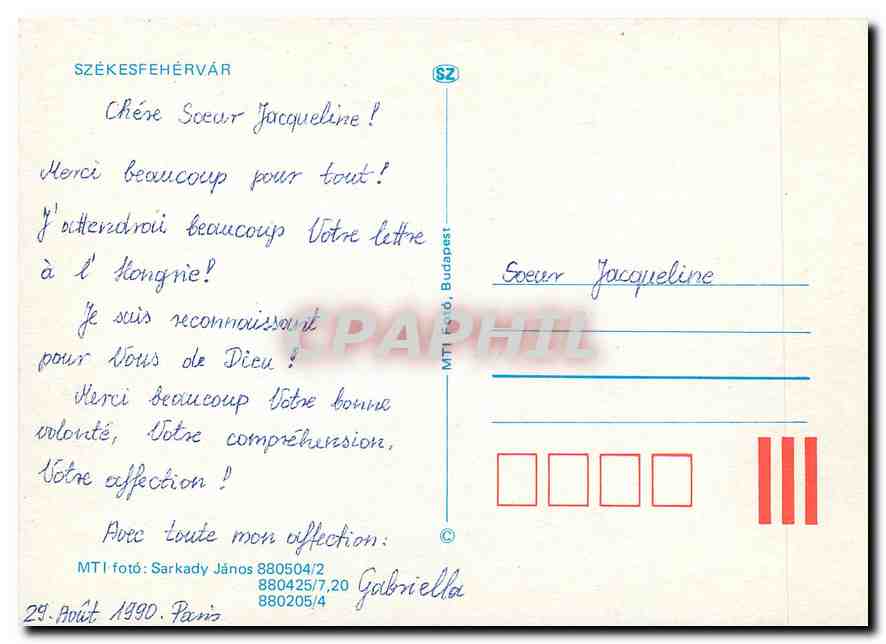 SZÉKESFEHÉRVÁR
SZ
Chére Soeur Jacqueline!
Merci beaucoup pour tout!
J'attendrai beaucoup Votre lettre
à l'Hongrie!
Je suis reconnaissant
pour Vous de Dieu!
Merci beaucoup Votre bonne
volonté, Votre compréhension,
Votre affection!
Avec toute mon affection:
Gabriella
29. Août 1990. Paris
MTI fotó: Sarkady János 880504/2
880425/7,20
880205/4
MTI Fotó, Budapest
©
Soeur Jacqueline
CPAPHIL